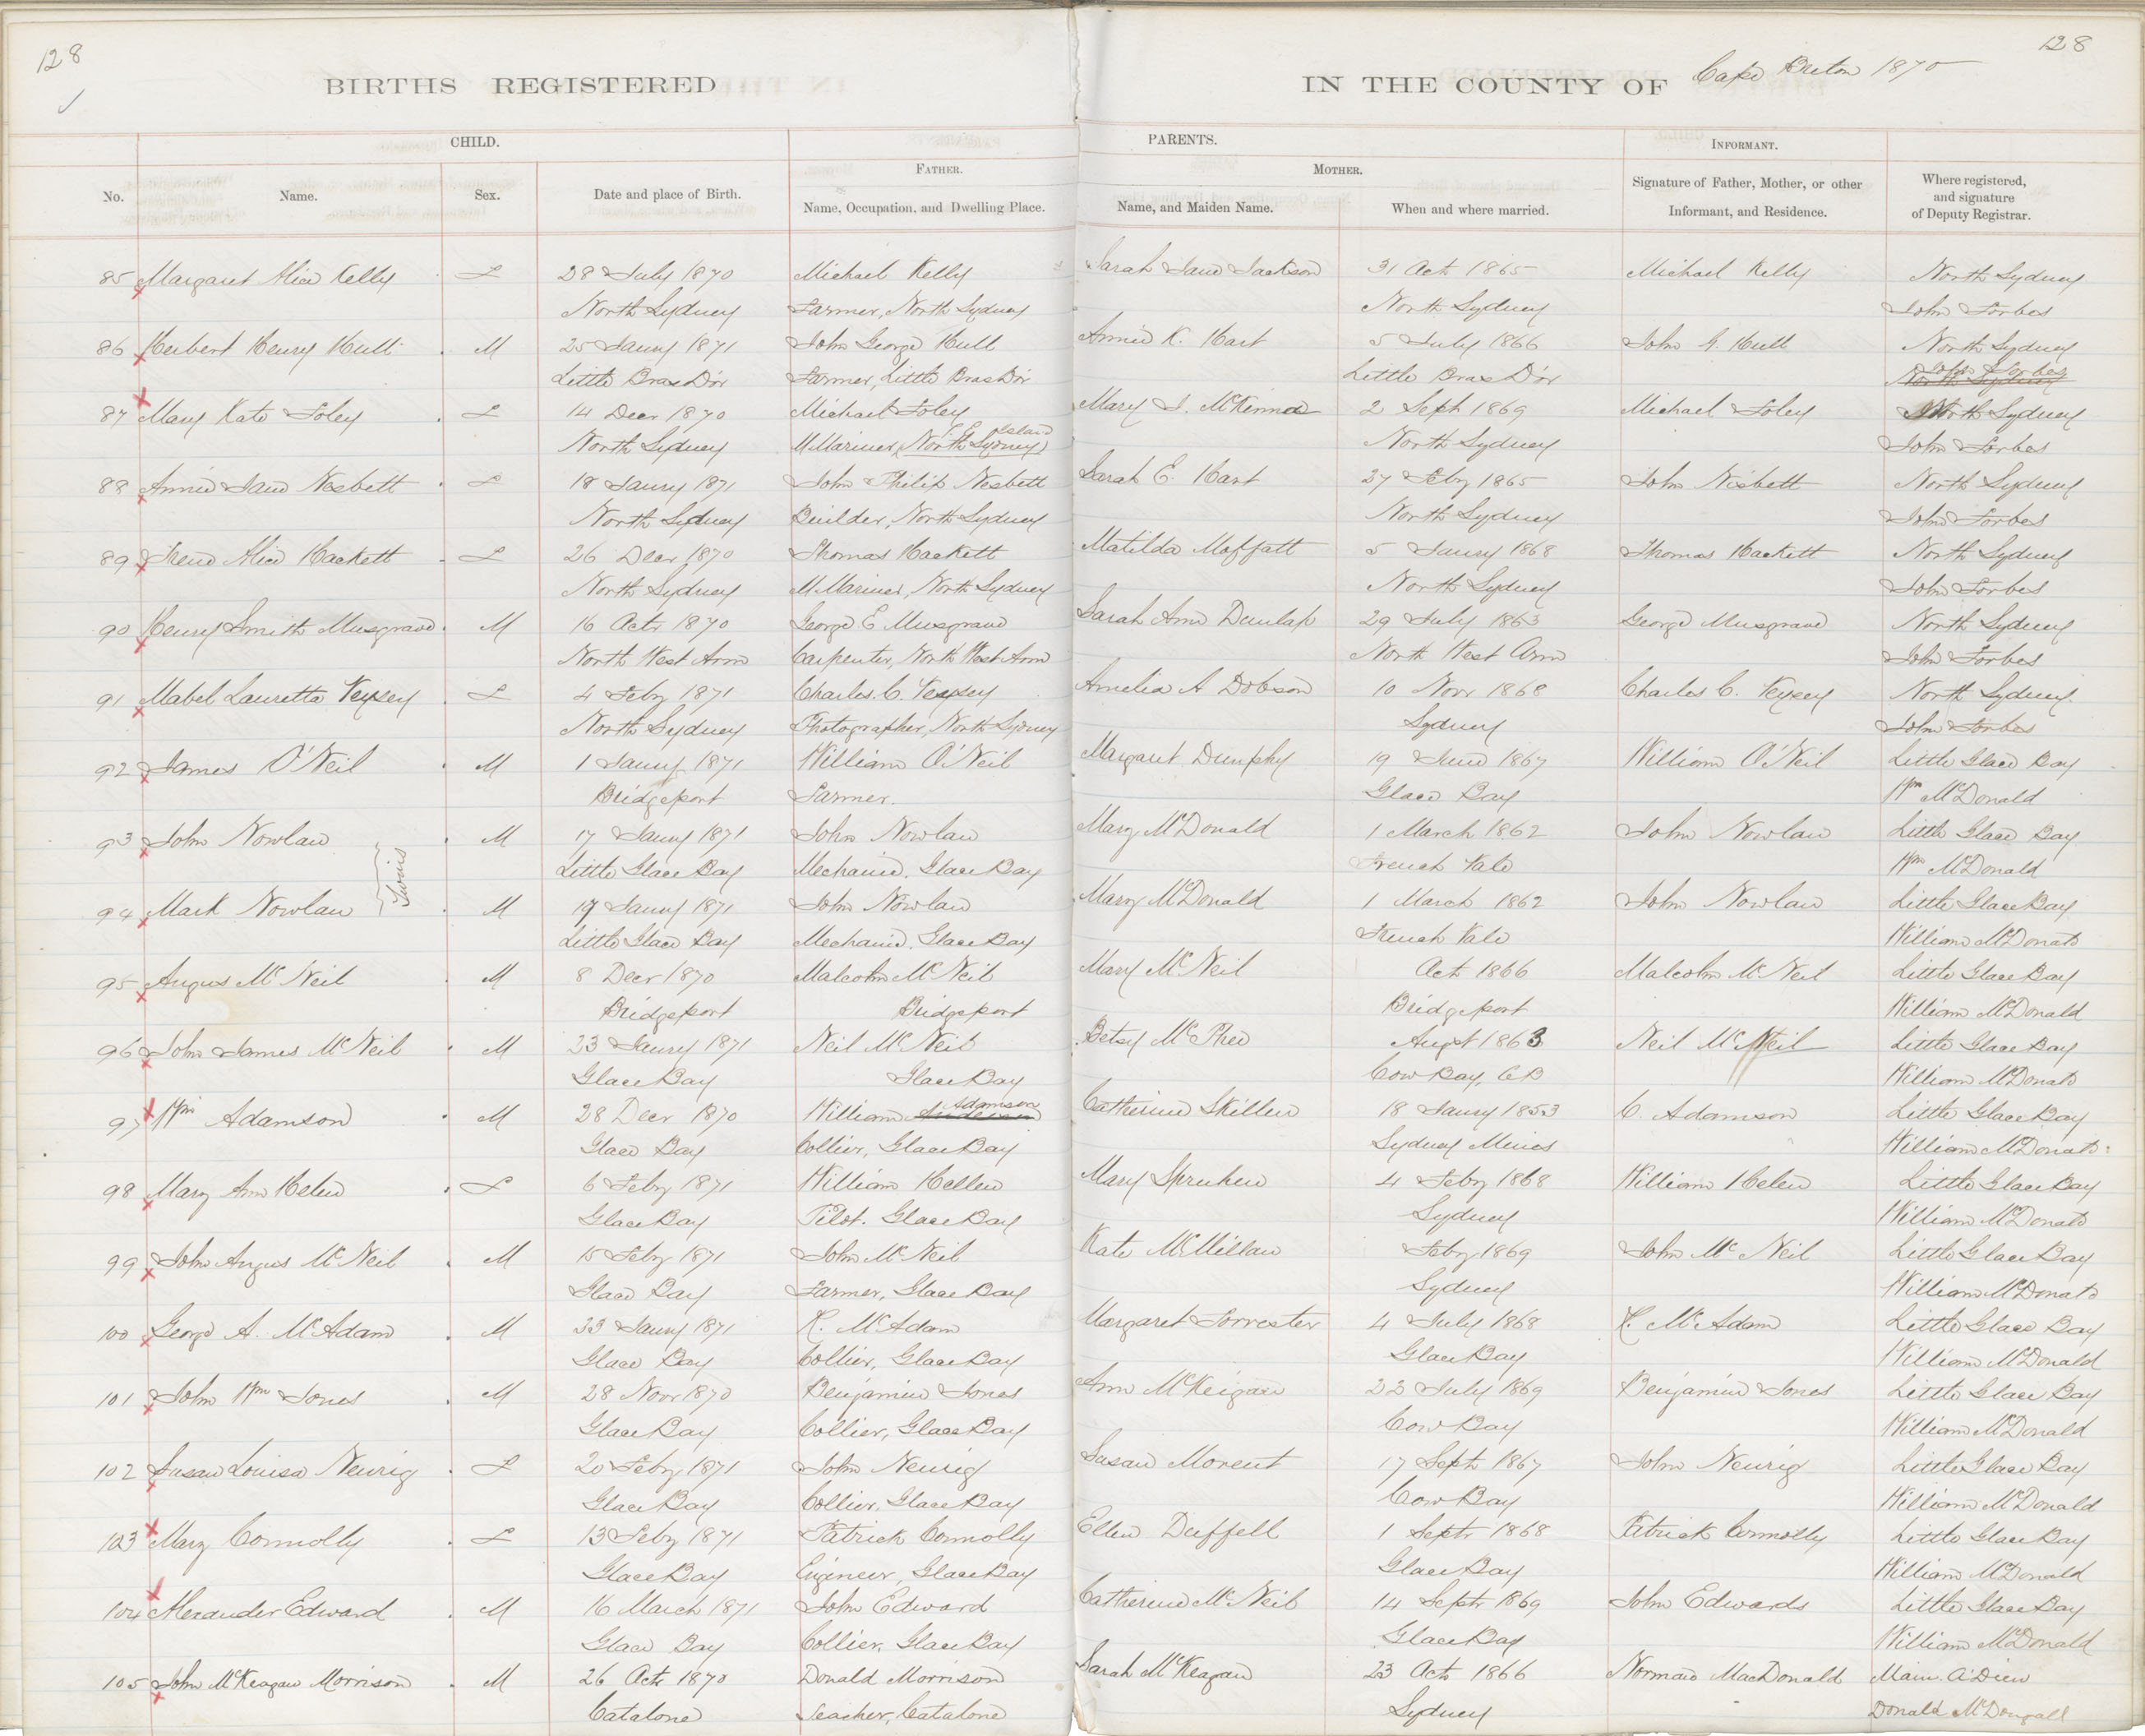 128
128
BIRTHS REGISTERED IN THE COUNTY OF Cape Breton 1870
CHILD. PARENTS. INFORMANT.
FATHER. MOTHER.
No. Name. Sex. Date and place of Birth. Name, Occupation, and Dwelling Place. Name, and Maiden Name. When and where married. Signature of Father, Mother, or other Informant, and Residence. Where registered, and signature of Deputy Registrar.
85 Margaret Alice Kelly F 28 July 1870 Michael Kelly Sarah Jane Jackson 31 Oct 1865 Michael Kelly North Sydney
North Sydney Farmer, North Sydney North Sydney John Forbes
86 Herbert Henry Hull M 25 Jany 1871 John George Hull Annie K. Hart 5 July 1866 John G. Hull North Sydney
Little Bras D'or Farmer, Little Bras D'or Little Bras D'or John Forbes
87 Mary Kate Foley F 14 Decr 1870 Michael Foley Mary J. McKinnon 2 Sept 1869 Michael Foley North Sydney
North Sydney M Mariner, North Sydney North Sydney John Forbes
88 Annie Jane Nesbett F 18 Jany 1871 John Philip Nesbett Sarah E. Hart 27 Feby 1865 John Nisbett North Sydney
North Sydney Builder, North Sydney North Sydney John Forbes
89 Irene Alice Hackett F 26 Decr 1870 Thomas Hackett Matilda Moffatt 5 Jany 1868 Thomas Hackett North Sydney
North Sydney M Mariner, North Sydney North Sydney John Forbes
90 Henry Smith Musgrave M 16 Octr 1870 George E Musgrave Sarah Ann Dunlap 29 July 1863 George Musgrave North Sydney
North West Arm Carpenter, North West Arm North West Arm John Forbes
91 Mabel Lauretta Veysey F 4 Feby 1871 Charles C. Veysey Amelia A Dobson 10 Novr 1868 Charles C. Veysey North Sydney
North Sydney Photographer, North Sydney Sydney John Forbes
92 James O'Neil M 1 Jany 1871 William O'Neil Margaret Dunphy 19 June 1867 William O'Neil Little Glace Bay
Bridgeport Farmer. Glace Bay Wm McDonald
93 John Nowlan M 17 Jany 1871 John Nowlan Mary McDonald 1 March 1862 John Nowlan Little Glace Bay
Twins Little Glace Bay Mechanic, Glace Bay French Vale Wm McDonald
94 Mark Nowlan M 17 Jany 1871 John Nowlan Mary McDonald 1 March 1862 John Nowlan Little Glace Bay
Little Glace Bay Mechanic, Glace Bay French Vale William McDonald
95 Angus McNeil M 8 Decr 1870 Malcolm McNeil Mary McNeil Oct 1866 Malcolm McNeil Little Glace Bay
Bridgeport Bridgeport Bridgeport William McDonald
96 John James McNeil M 23 Jany 1871 Neil McNeil Betsy McPhee Augst 1863 Neil McNeil Little Glace Bay
Glace Bay Glace Bay Cow Bay, CB William McDonald
97 Wm Adamson M 28 Decr 1870 William Adamson Catherine Skillen 18 Jany 1853 C. Adamson Little Glace Bay
Glace Bay Collier, Glace Bay Sydney Mines William McDonald
98 Mary Ann Helen F 6 Feby 1871 William Hellen Mary 4 Feby 1868 William Helen Little Glace Bay
Glace Bay Pilot. Glace Bay Sydney William McDonald
99 John Angus McNeil M 15 Feby 1871 John McNeil Kate McMillan Feby 1869 John McNeil Little Glace Bay
Glace Bay Farmer, Glace Bay Sydney William McDonald
100 George A. McAdam M 23 Jany 1871 R. McAdam Margaret Forrester 4 July 1868 R. McAdam Little Glace Bay
Glace Bay Collier, Glace Bay Glace Bay William McDonald
101 John Wm Jones M 28 Novr 1870 Benjamin Jones Ann McKeigan 22 July 1869 Benjamin Jones Little Glace Bay
Glace Bay Collier, Glace Bay Cow Bay William McDonald
102 Susan Louisa Neurig F 20 Feby 1871 John Neurig Susan Morent 17 Sept 1867 John Neurig Little Glace Bay
Glace Bay Collier, Glace Bay Cow Bay William McDonald
103 Mary Connolly F 13 Feby 1871 Patrick Connolly Ellen Duffell 1 Septr 1868 Patrick Connolly Little Glace Bay
Glace Bay Engineer, Glace Bay Glace Bay William McDonald
104 Alexander Edward M 16 March 1871 John Edward Catherine McNeil 14 Septr 1869 John Edwards Little Glace Bay
Glace Bay Collier, Glace Bay Glace Bay William McDonald
105 John McKeagan Morrison M 26 Octr 1870 Donald Morrison Sarah McKeagan 23 Octr 1866 Norman MacDonald Main. A'Dieu
Catalone Teacher, Catalone Sydney Donald McDougall